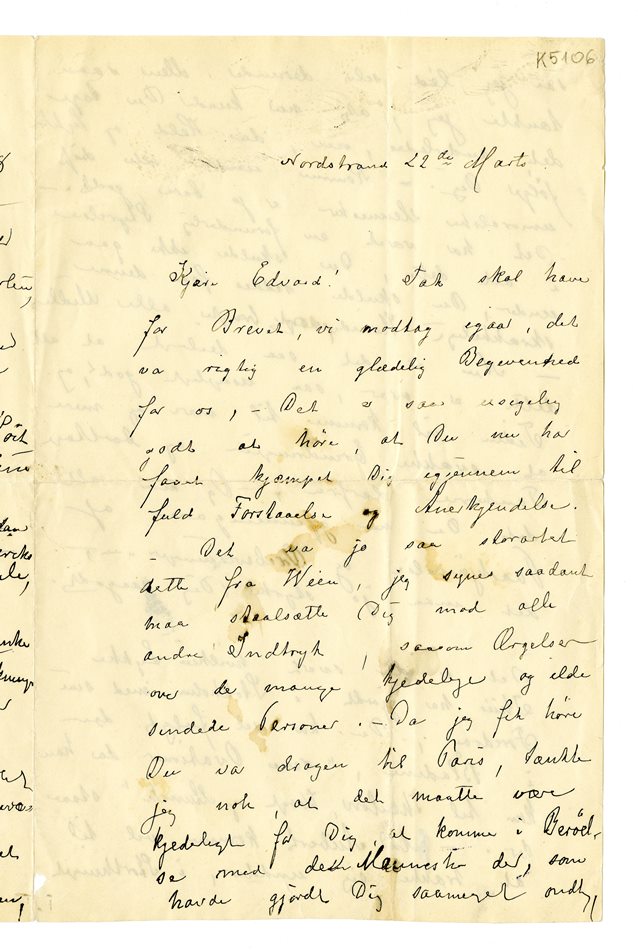 K5106
Nordstrand 22de Marts.
Kjære Edvard! Tak skal have
for Brevet, vi modtog igaar, det
va rigtig en glædelig Begevenhed
for os, – Det er saa usigelig
godt at höre, at Du nu har
faaet kjæmpet Dig igjennem til
fuld Forstaaelse og Anerkjendelse.
– Det va jo saa storartet
dette fra Wien, jeg synes saadant
maa staalsætte Dig mod alle
andre Indtryk, saasom Ærgelser
over de mange kjedelige og ilde
sindede Personer. – Da jeg fik höre
Du var dragen til Paris, tænkte
jeg nok, at det maatte være
kjedeligt for Dig, at komme i Beröel-
se med det Menneske der, som
havde gjördt Dig saameget ondt,